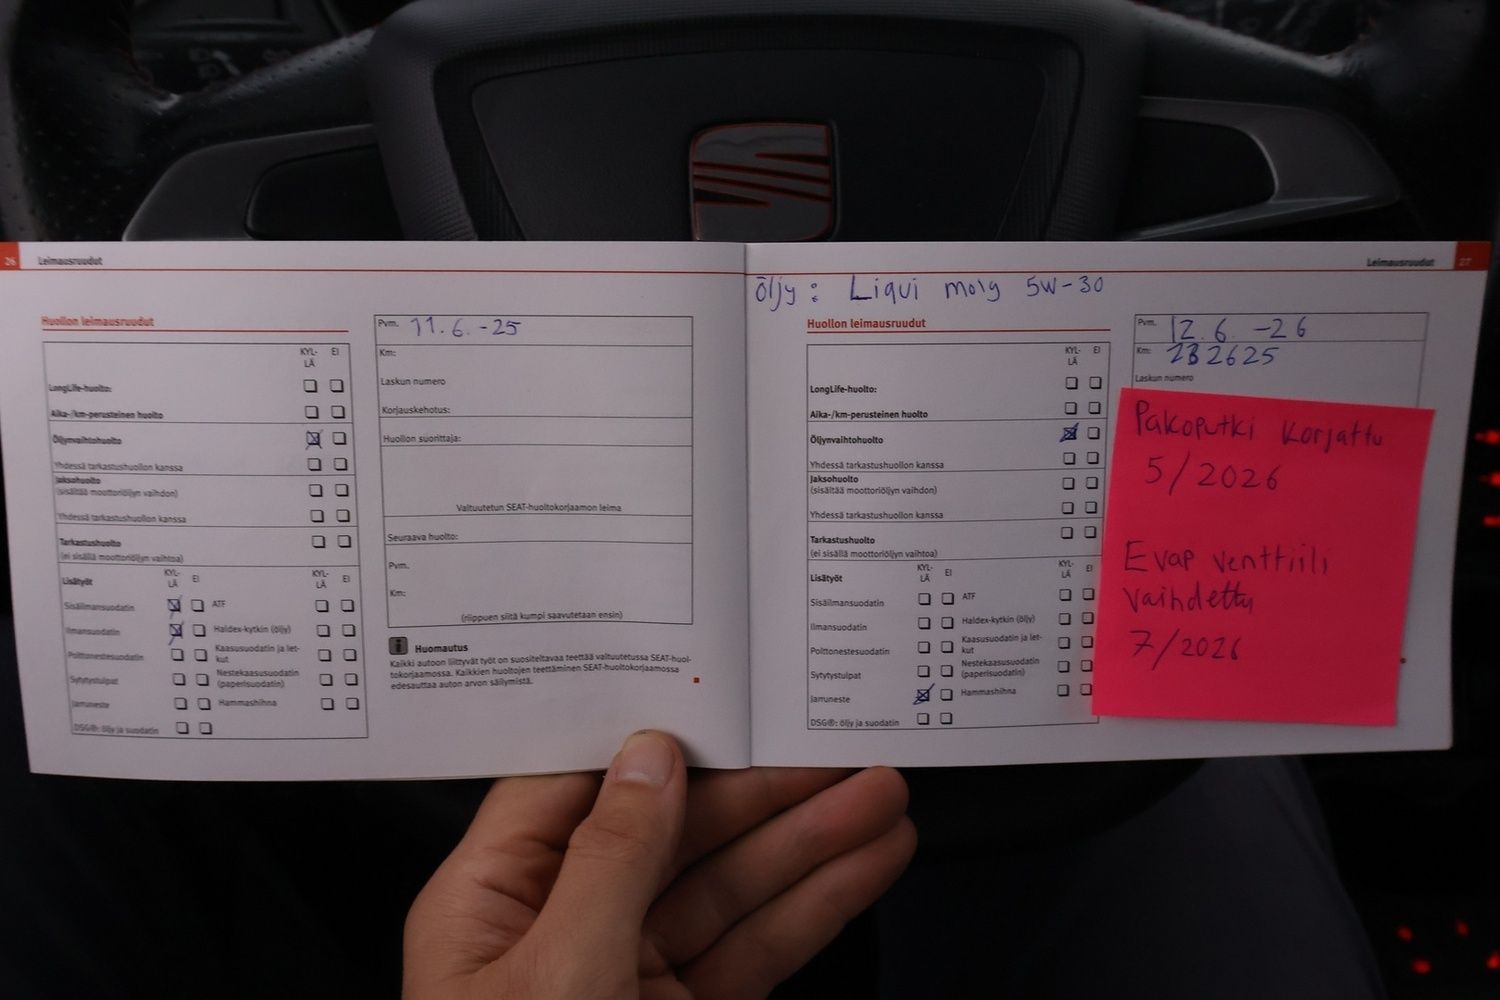 26 Leimausruudut
Huollon leimausruudut
KYL-LÄ EI
LongLife-huolto:
Aika-/km-perusteinen huolto
Öljynvaihtohuolto
Yhdessä tarkastushuollon kanssa
Jaksohuolto
(sisältää moottoriöljyn vaihdon)
Yhdessä tarkastushuollon kanssa
Tarkastushuolto
(ei sisällä moottoriöljyn vaihtoa)
Lisätyöt KYL-LÄ EI KYL-LÄ EI
Sisäilmansuodatin ATF
Ilmansuodatin Haldex-kytkin (öljy)
Polttonestesuodatin Kaasusuodatin ja let-
kut
Sytytystulpat Nestekaasusuodatin
(paperisuodatin)
Jarruneste Hammashihna
DSG®: öljy ja suodatin
Pvm. 11.6.-25
Km:
Laskun numero
Korjauskehotus:
Huollon suorittaja:
Valtuutetun SEAT-huoltokorjaamon leima
Seuraava huolto:
Pvm.
Km:
(riippuen siitä kumpi saavutetaan ensin)
Huomautus
Kaikki autoon liittyvät työt on suositeltavaa teettää valtuutetussa SEAT-huol-
tokorjaamossa. Kaikkien huoltojen teettäminen SEAT-huoltokorjaamossa
edesauttaa auton arvon säilymistä.
Leimausruudut 27
öljy: Liqui moly 5W-30
Huollon leimausruudut
KYL-LÄ EI
LongLife-huolto:
Aika-/km-perusteinen huolto
Öljynvaihtohuolto
Yhdessä tarkastushuollon kanssa
Jaksohuolto
(sisältää moottoriöljyn vaihdon)
Yhdessä tarkastushuollon kanssa
Tarkastushuolto
(ei sisällä moottoriöljyn vaihtoa)
Lisätyöt KYL-LÄ EI KYL-LÄ EI
Sisäilmansuodatin ATF
Ilmansuodatin Haldex-kytkin (öljy)
Polttonestesuodatin Kaasusuodatin ja let-
kut
Sytytystulpat Nestekaasusuodatin
(paperisuodatin)
Jarruneste Hammashihna
DSG®: öljy ja suodatin
Pvm. 12.6.-26
Km:
Laskun numero
Pakoputki korjattu
5/2026
Evap venttiili
vaihdettu
7/2026